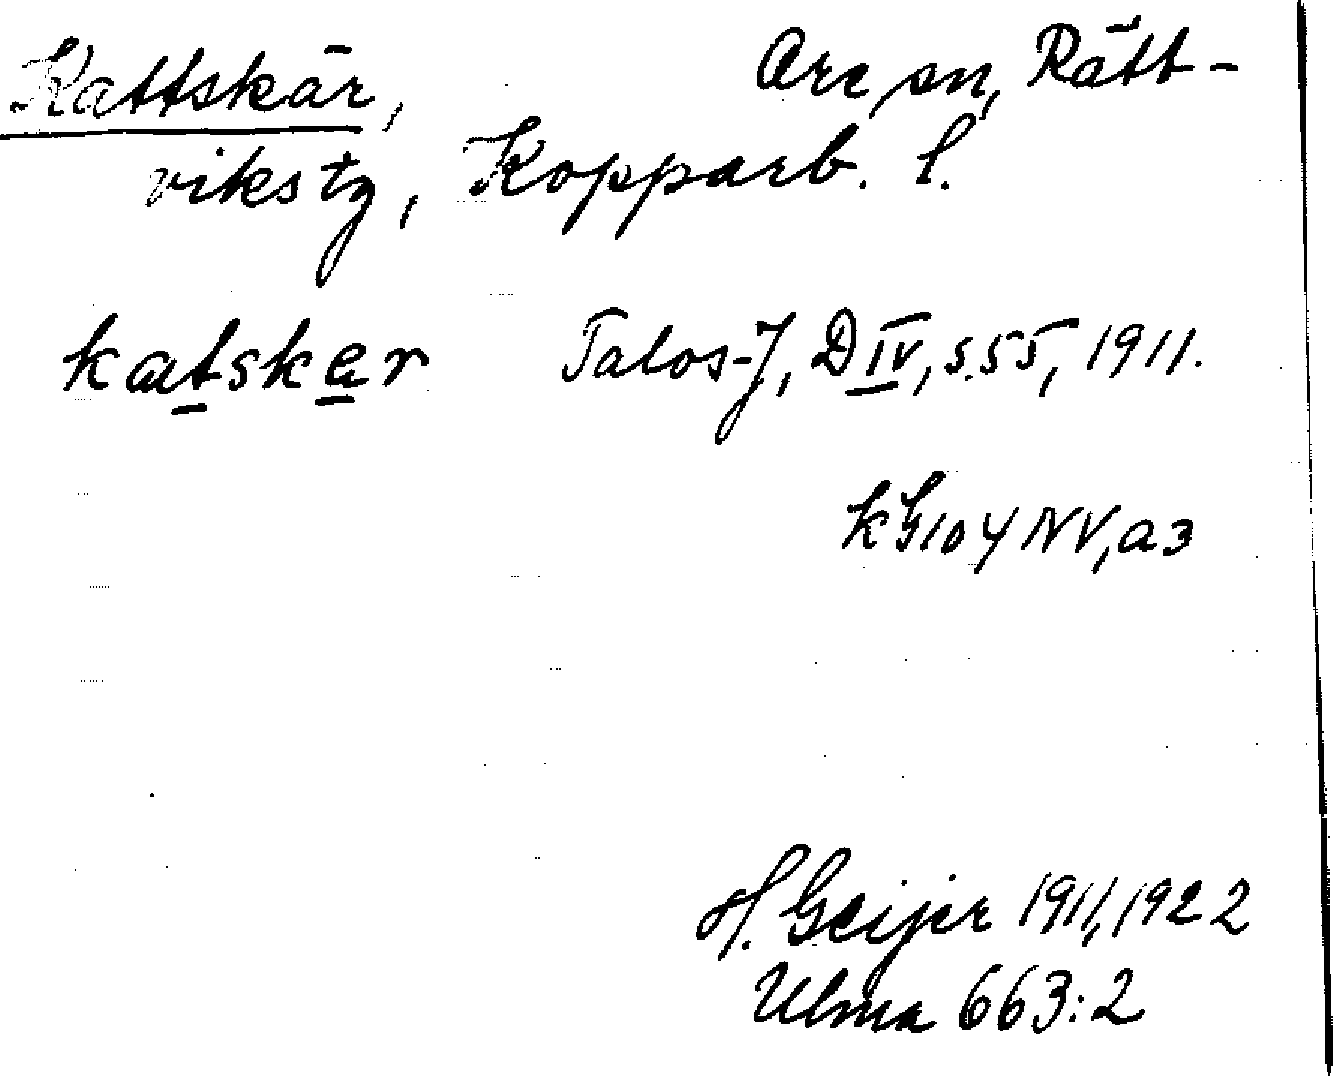 Kattskär, Ore sn, Rätt-
vikstg, Kopparb. l.
katskær Talos-J, D IV, s.55, 1911.
k G 104 NV, a3
H. Geijer 1911, 1922
Ulma 663:2